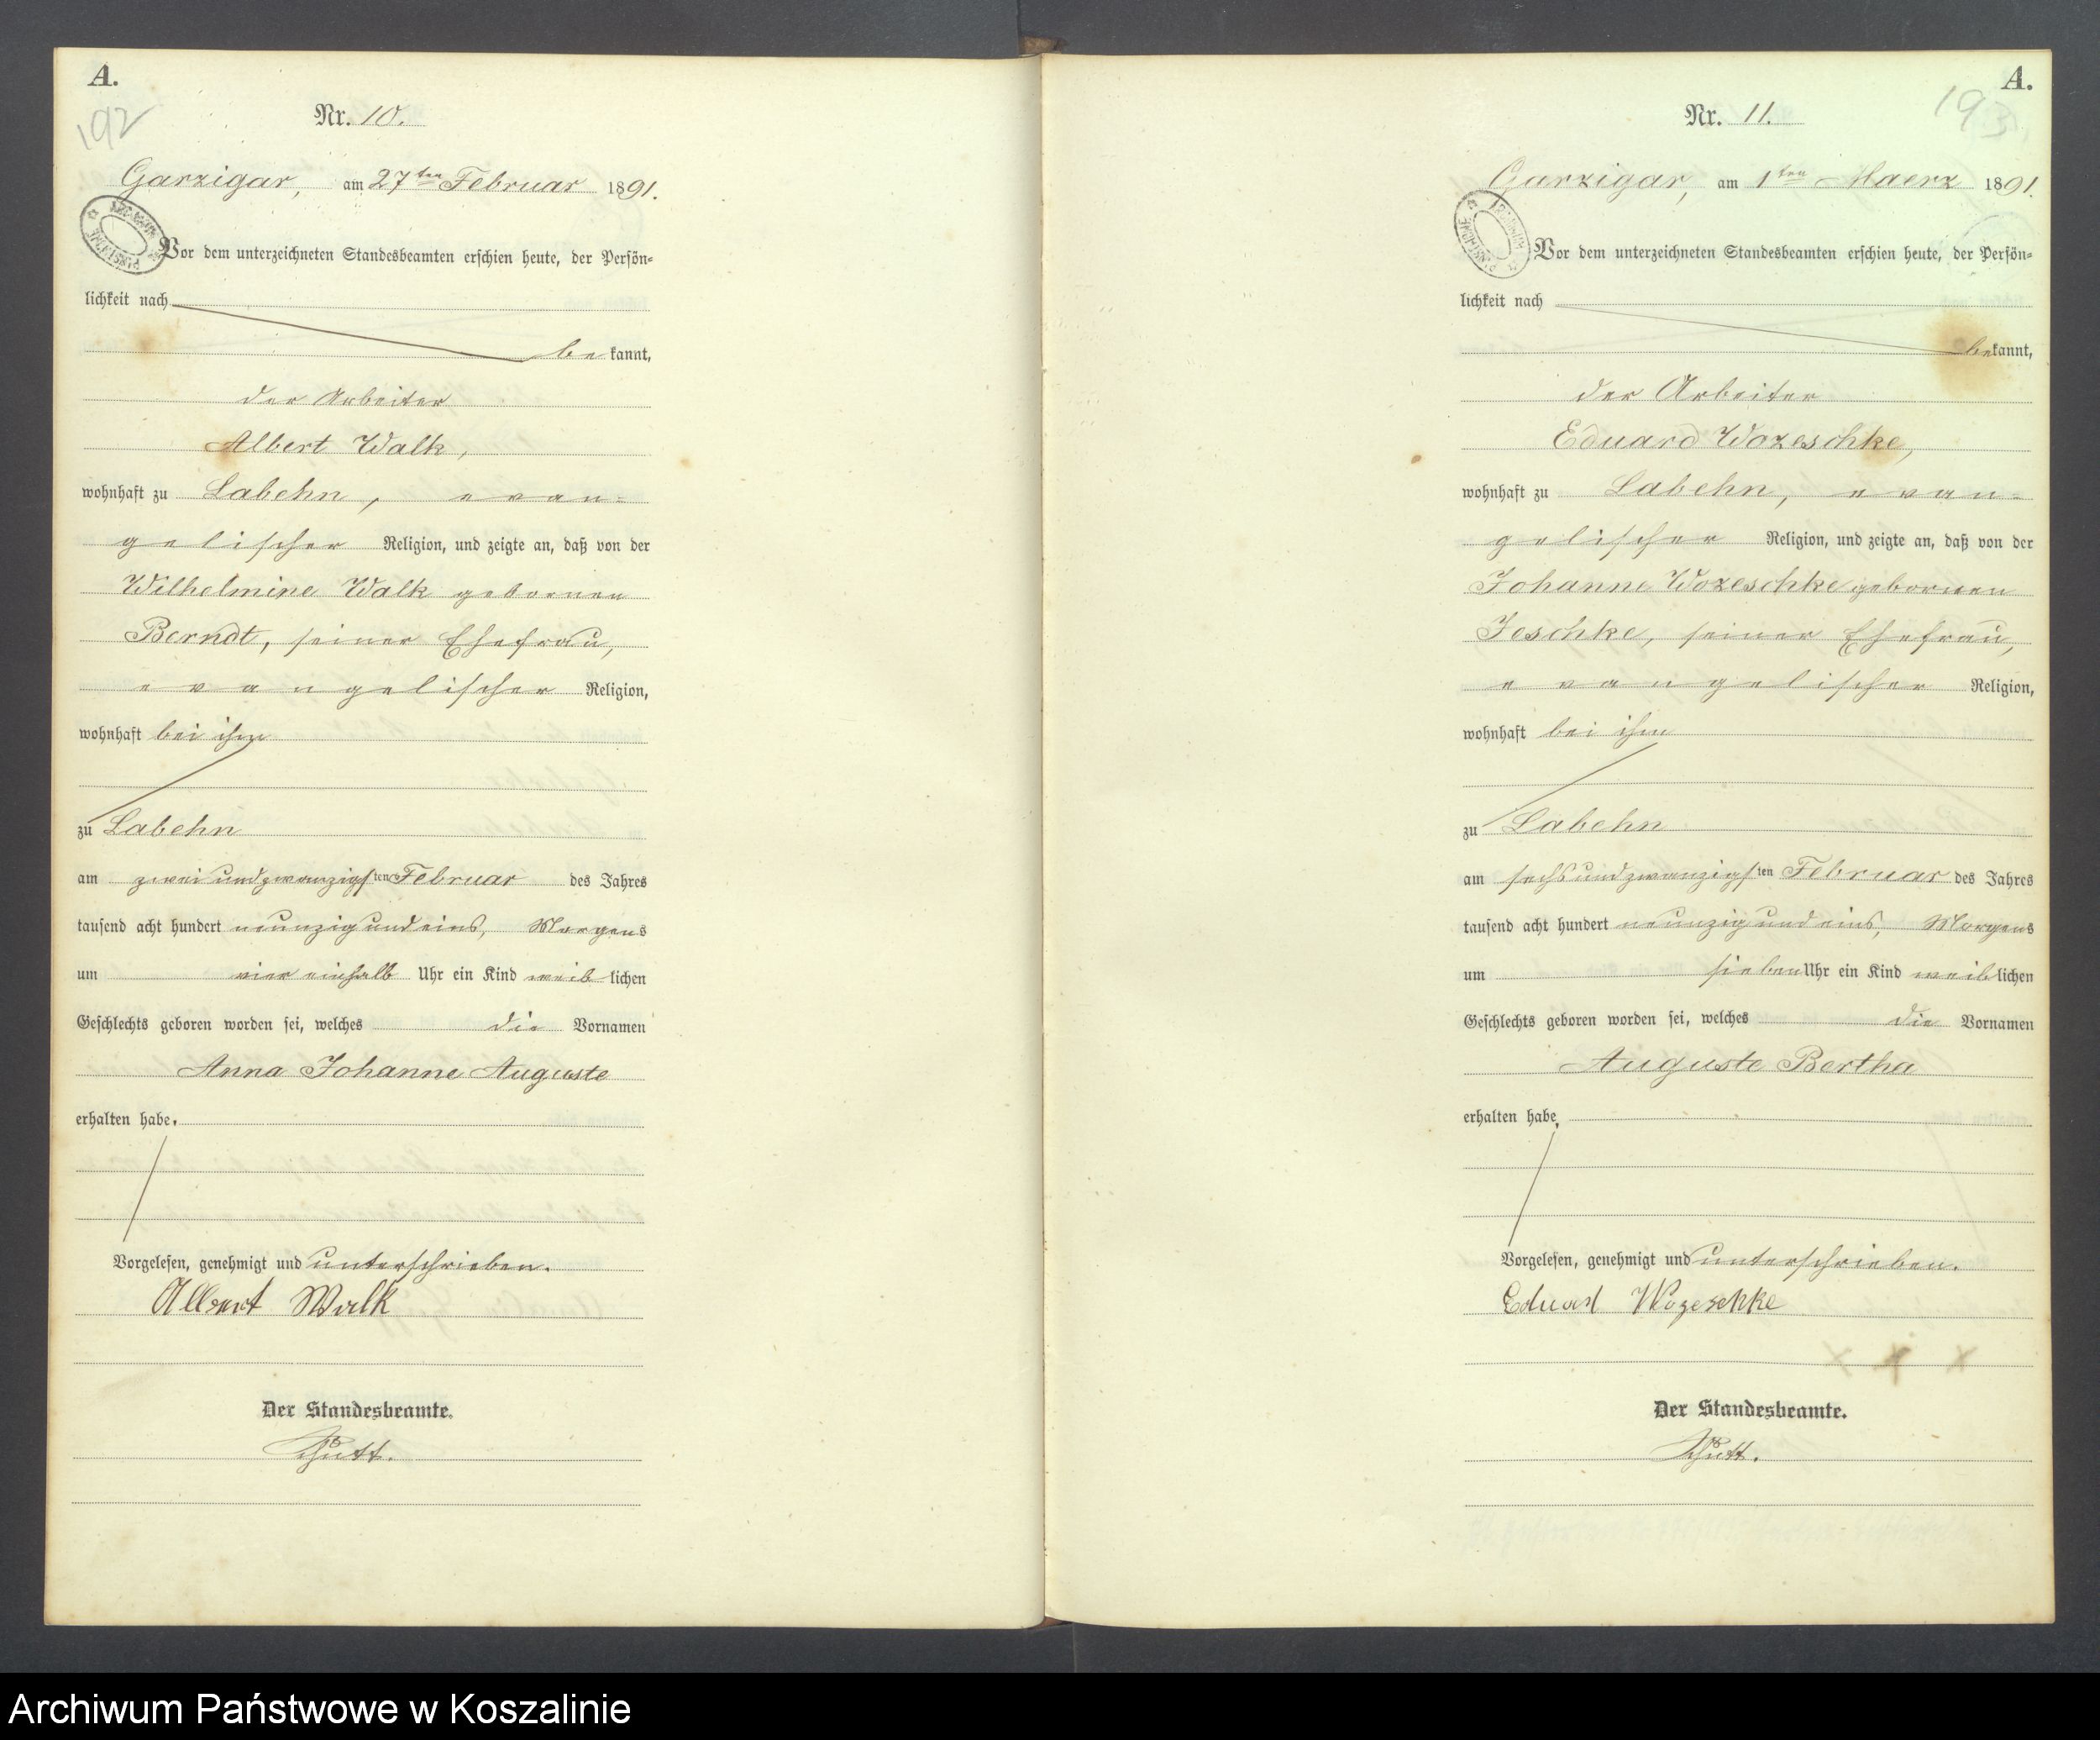 A.
192
Nr. 10.
Garzigar, am 27ten Februar 1891.
Vor dem unterzeichneten Standesbeamten erschien heute, der Persön-
lichkeit nach
bekannt,
der Arbeiter
Albert Walk,
wohnhaft zu Labehn, evan-
gelischer Religion, und zeigte an, daß von der
Wilhelmine Walk gebornen
Berndt, seiner Ehefrau,
evangelischer Religion,
wohnhaft bei ihm
zu Labehn
am zweiundzwanzigsten Februar des Jahres
tausend acht hundert neunzig und eins, Morgens
um vier einhalb Uhr ein Kind weiblichen
Geschlechts geboren worden sei, welches die Vornamen
Anna Johanne Auguste
erhalten habe.
Vorgelesen, genehmigt und unterschrieben.
Albert Walk
Der Standesbeamte.
Schütt.
A.
193
Nr. 11.
Garzigar, am 1ten Maerz 1891.
Vor dem unterzeichneten Standesbeamten erschien heute, der Persön-
lichkeit nach
bekannt,
der Arbeiter
Eduard Wozeschke,
wohnhaft zu Labehn, evan-
gelischer Religion, und zeigte an, daß von der
Johanne Wozeschke gebornen
Jeschke, seiner Ehefrau,
evangelischer Religion,
wohnhaft bei ihm
zu Labehn
am sechsundzwanzigsten Februar des Jahres
tausend acht hundert neunzig und eins, Morgens
um sieben Uhr ein Kind weiblichen
Geschlechts geboren worden sei, welches die Vornamen
Auguste Bertha
erhalten habe.
Vorgelesen, genehmigt und unterschrieben.
Eduard Wozeschke
x x x
Der Standesbeamte.
Schütt.
Archiwum Państwowe w Koszalinie